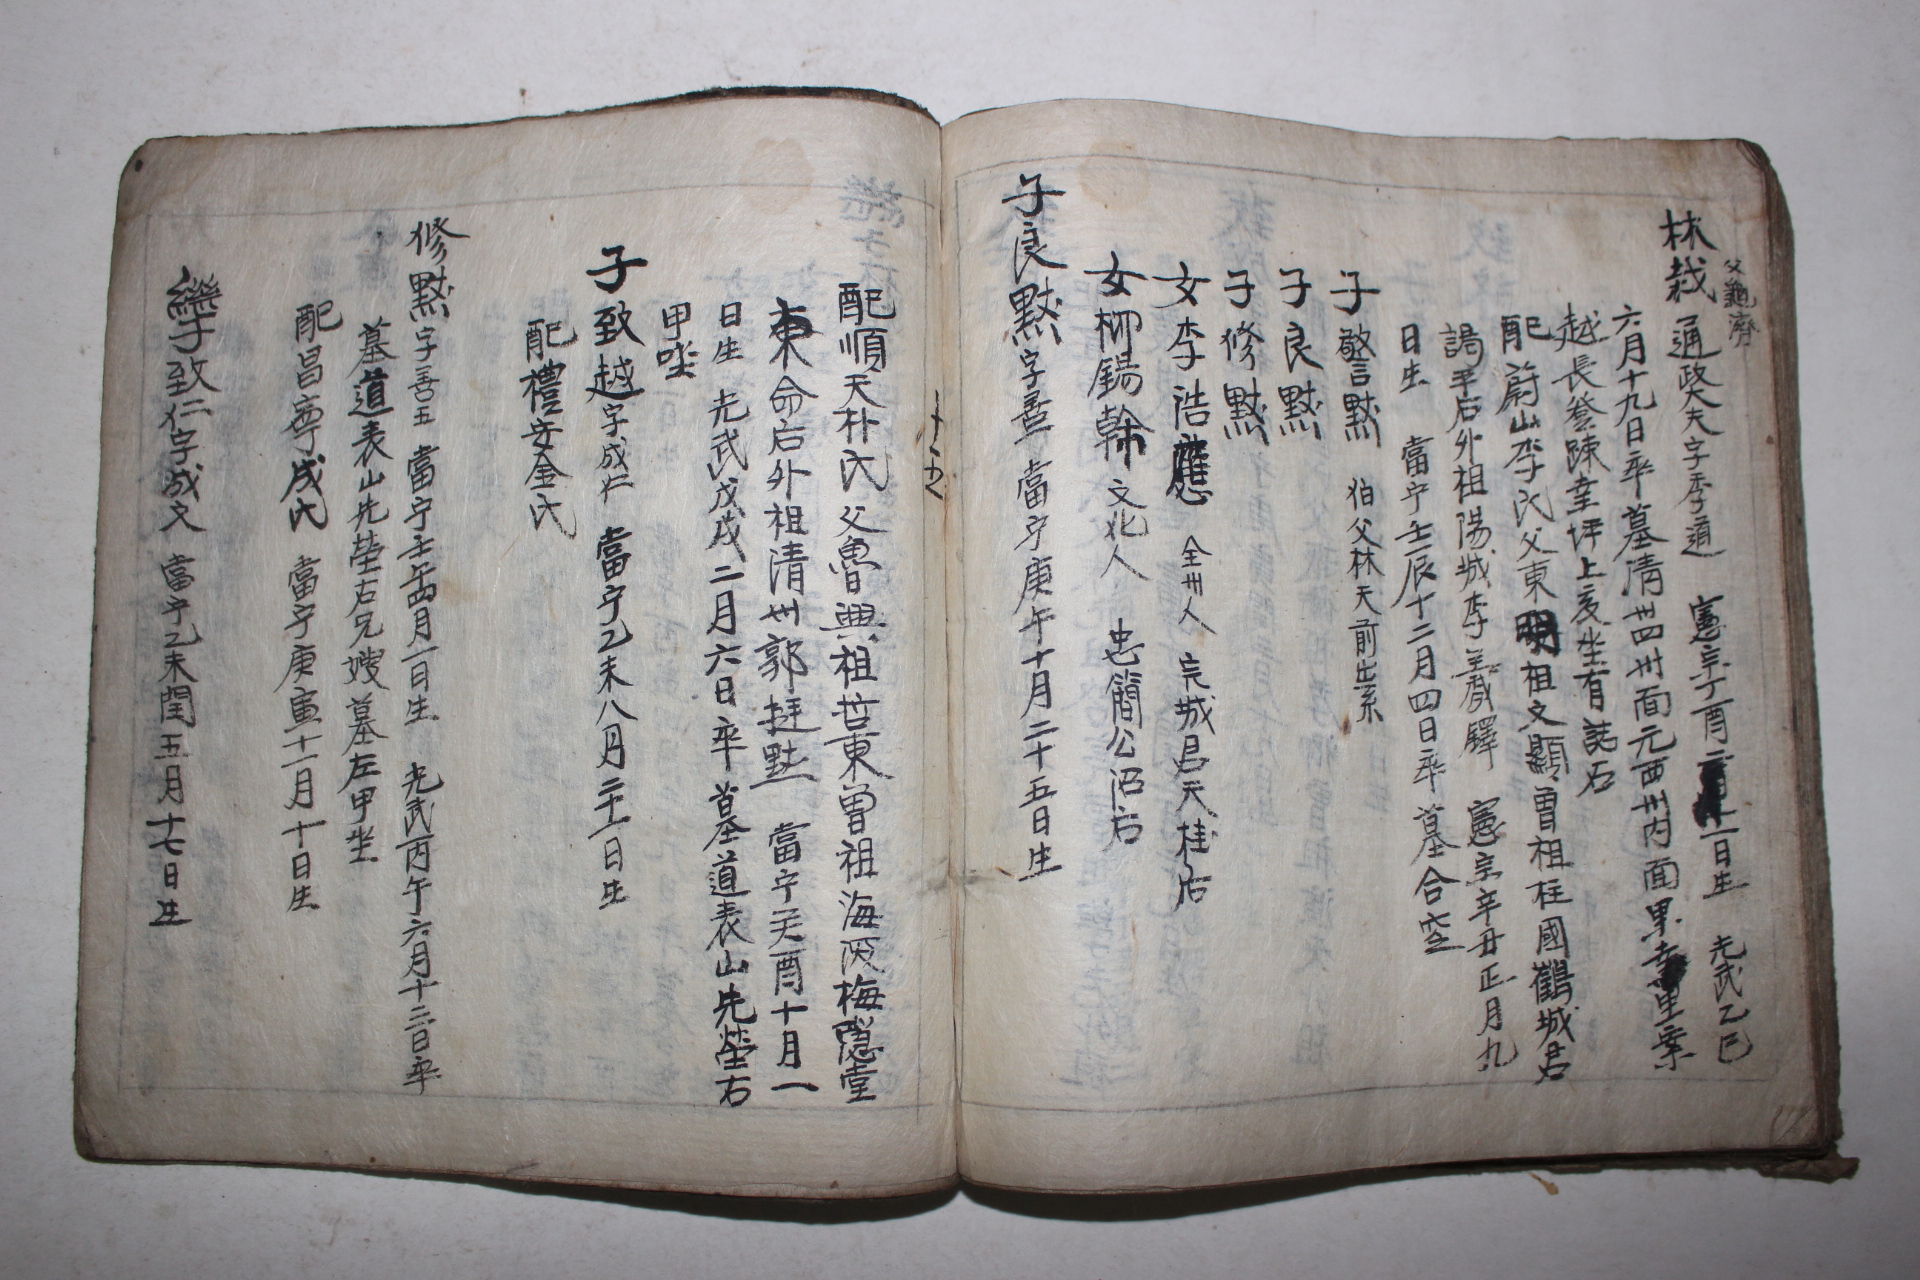 父龜濟
林栽 通政大夫字季道 憲宗丁酉二月二日生 光武乙巳
六月十九日卒墓淸州四州面元西州內面里幸里案
越長登踈幸坪上亥坐有誌石
配蔚山李氏父東明祖文顯曾祖柱國鶴城君
謁平后外祖陽城李義鐸 憲宗辛丑正月九
日生 當宁壬辰十二月四日卒墓合窆
子警默 伯父林天前出系
子良默
子修默
女李浩應 全州人 完城君天桂后
女柳錫幹 文化人 忠簡公沼后
子良默 字善 當宁庚午十月二十五日生
十五
配順天朴氏父魯興祖哲東曾祖海愿梅隱堂
東命后外祖淸州郭挺 當宁癸酉十月一
日生 光武戊戌二月六日卒墓道表山先塋右
甲坐
子致越 字成仁 當宁乙未八月二十一日生
配禮安金氏
修默 字善五 當宁壬午四月一日生 光武丙午六月十三日卒
墓道表山先塋右兄嫂墓左甲坐
配昌寧成氏 當宁庚寅十一月十日生
繼子致仁 字成文 當宁乙未閏五月十七日生